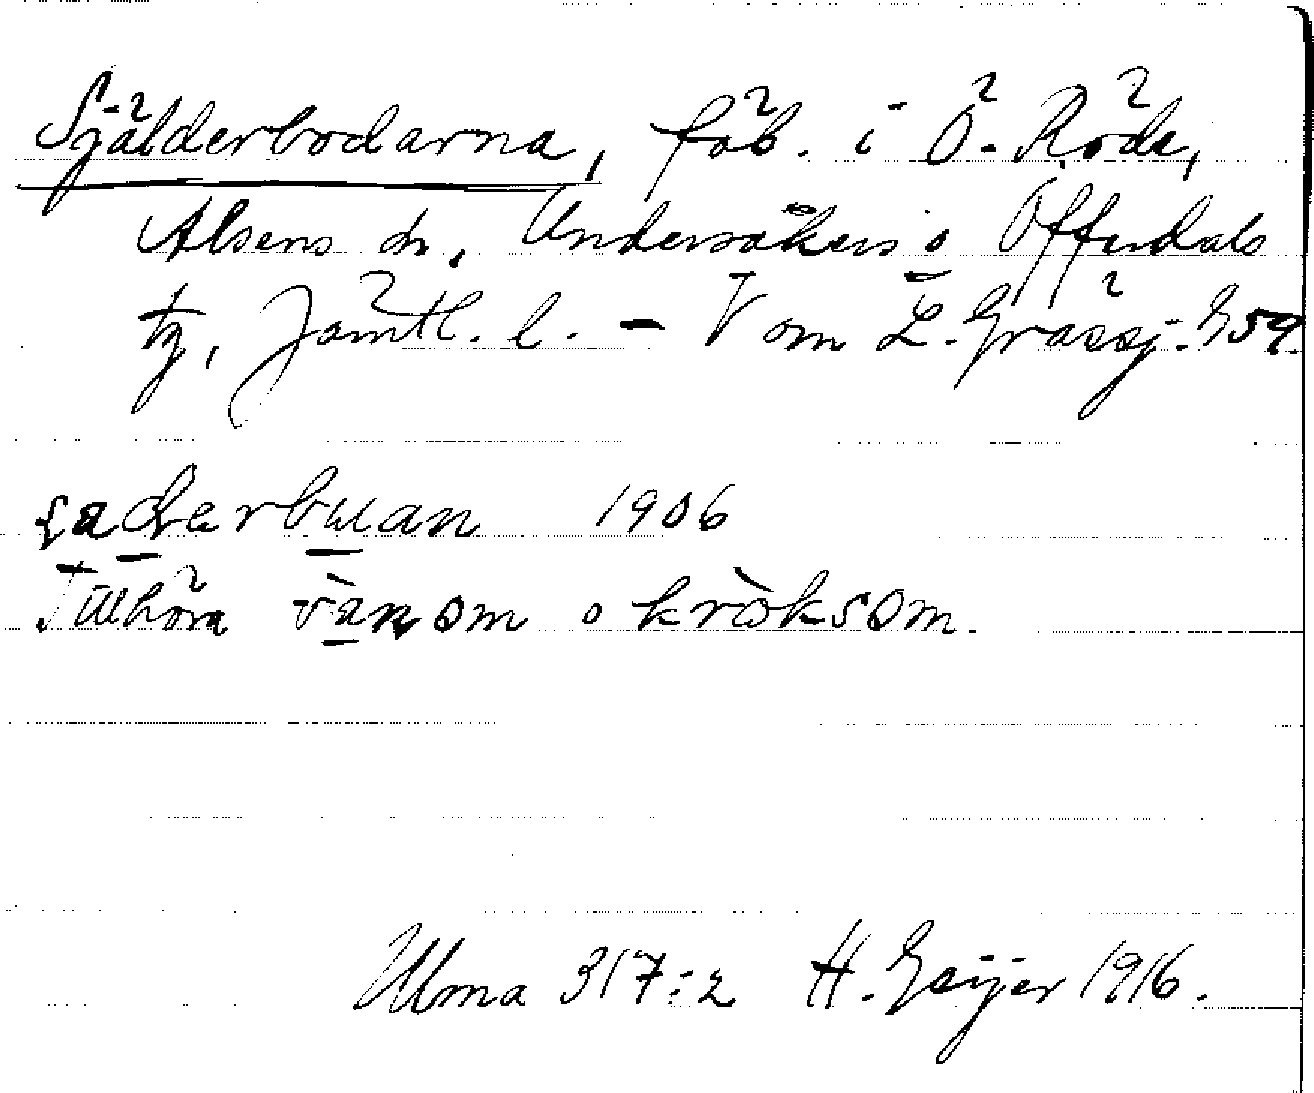 Själderbodarna, fäb. i Ö. Röde,
Alsens sn, Undersåkers o Offerdals
tg, Jämtl. l. – V om L. Gråssj. G59.
1906
Tillhöra o kròksom.
Ulma 317:2 H. Geijer 1916.